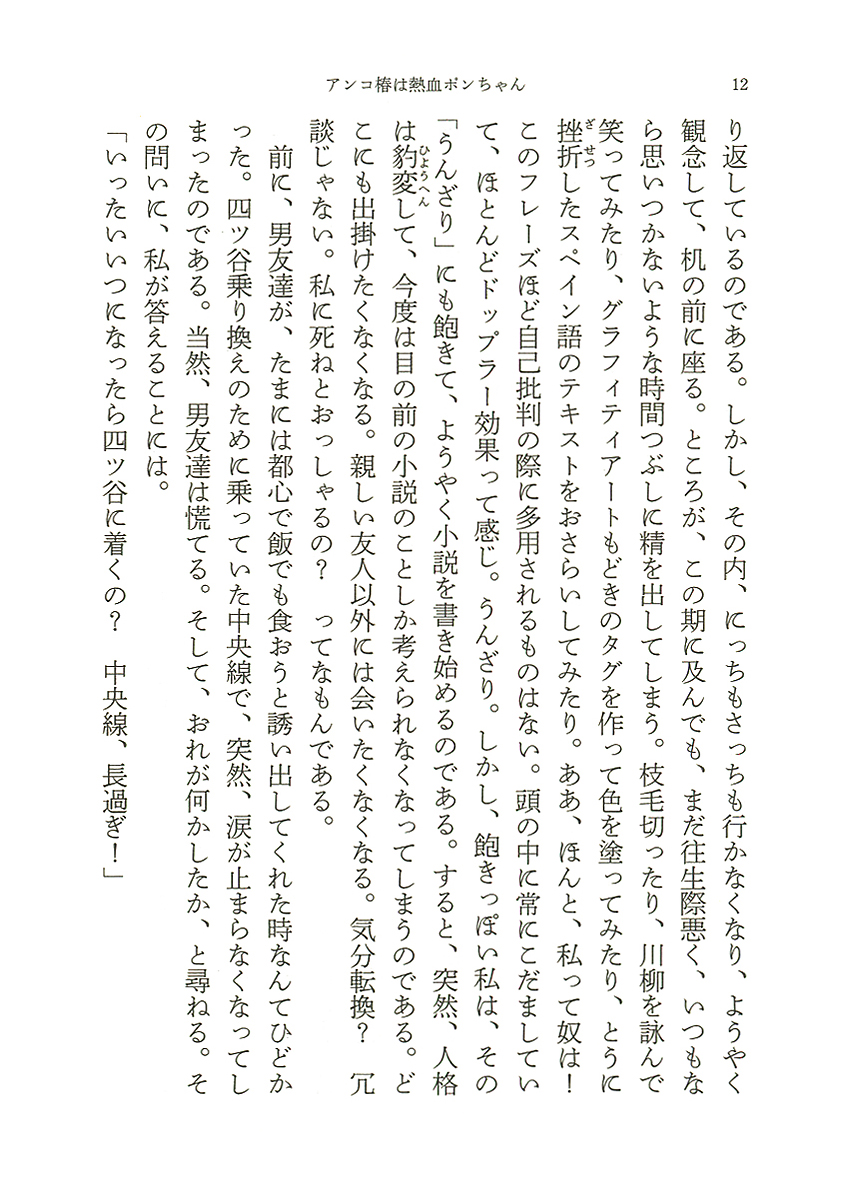 アンコ椿は熱血ポンちゃん
12
り返しているのである。しかし、その内、にっちもさっちも行かなくなり、ようやく
観念して、机の前に座る。ところが、この期に及んでも、まだ往生際悪く、いつもな
ら思いつかないような時間つぶしに精を出してしまう。枝毛切ったり、川柳を詠んで
笑ってみたり、グラフィティアートもどきのタグを作って色を塗ってみたり、とうに
挫折したスペイン語のテキストをおさらいしてみたり。ああ、ほんと、私って奴は！
ざせつ
このフレーズほど自己批判の際に多用されるものはない。頭の中に常にこだましてい
て、ほとんどドップラー効果って感じ。うんざり。しかし、飽きっぽい私は、その
「うんざり」にも飽きて、ようやく小説を書き始めるのである。すると、突然、人格
は豹変して、今度は目の前の小説のことしか考えられなくなってしまうのである。ど
ひょうへん
こにも出掛けたくなくなる。親しい友人以外には会いたくなくなる。気分転換？　冗
談じゃない。私に死ねとおっしゃるの？　ってなもんである。
　前に、男友達が、たまには都心で飯でも食おうと誘い出してくれた時なんてひどか
った。四ツ谷乗り換えのために乗っていた中央線で、突然、涙が止まらなくなってし
まったのである。当然、男友達は慌てる。そして、おれが何かしたか、と尋ねる。そ
の問いに、私が答えることには。
「いったいいつになったら四ツ谷に着くの？　中央線、長過ぎ！」